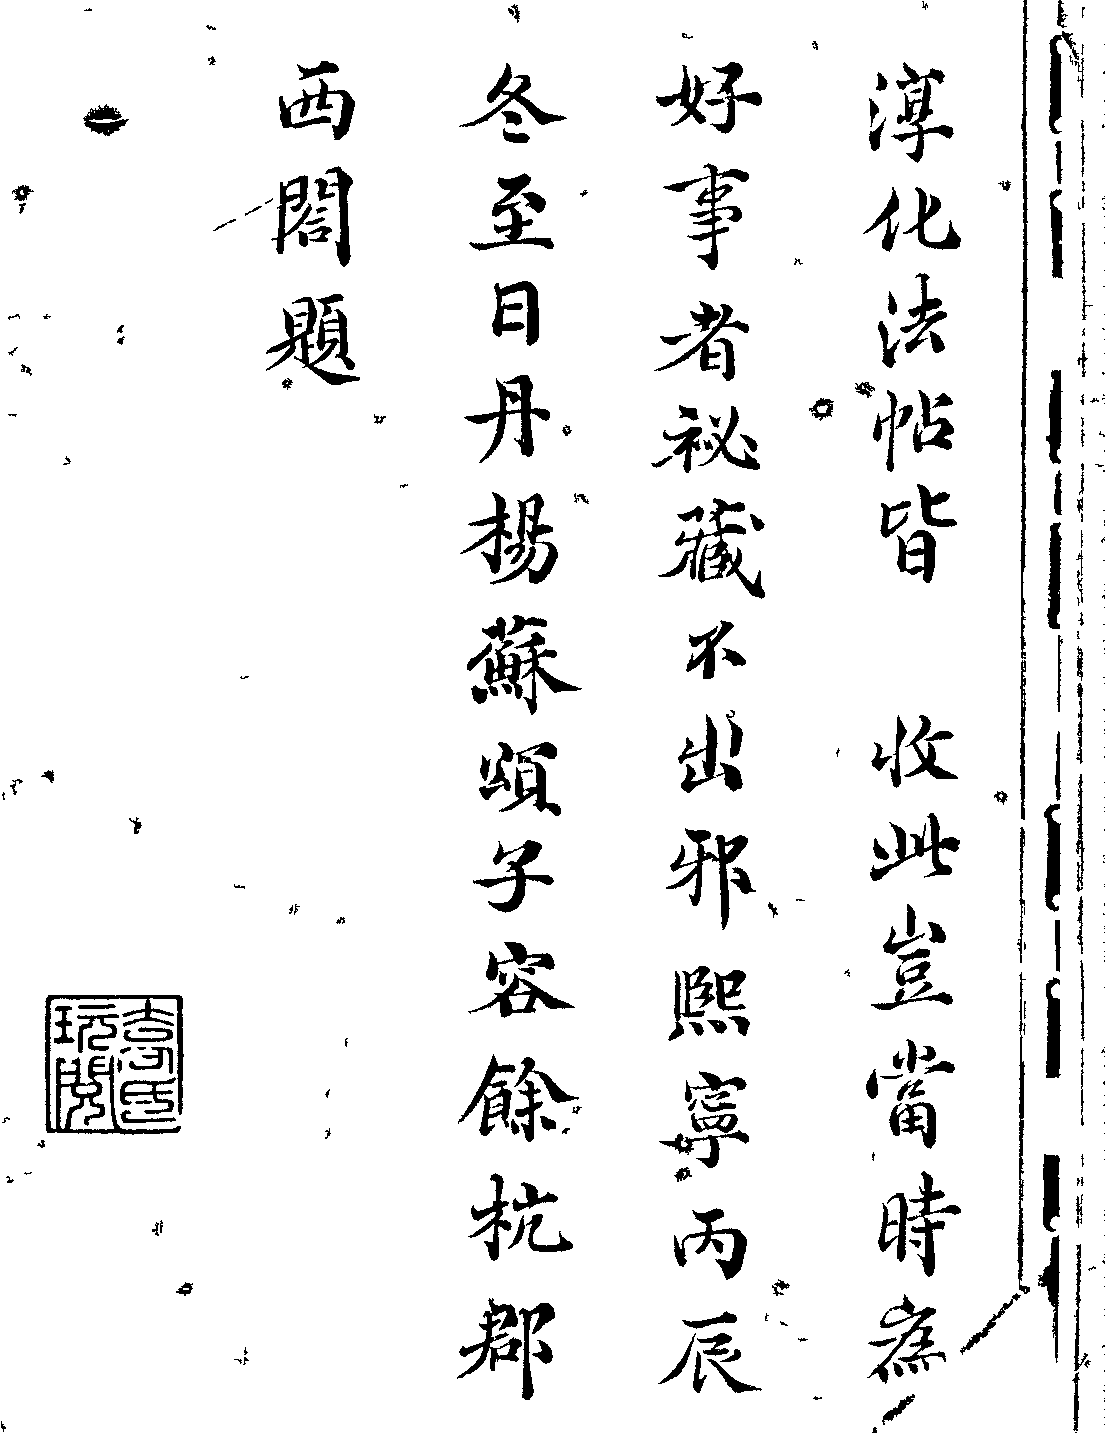 淳化法帖皆 收此豈當時為
好事者祕藏不出邪熙寧丙辰
冬至日丹楊蘇頌子容餘杭郡
西閤題